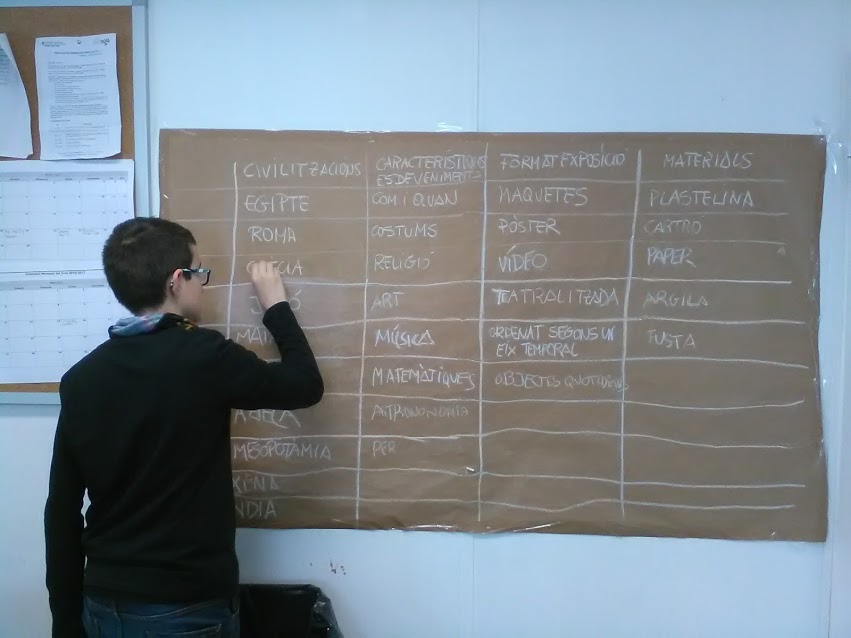 CIVILITZACIONS CARACTERÍSTIQUES FORMAT EXPOSÍCIÓ MATERIALS
ESDEVENIMENTS
EGIPTE COM I QUAN MAQUETES PLASTELINA
ROMA COSTUMS PÒSTER CARTRÓ
RELIGIÓ VÍDEO PAPER
ART TEATRALITZADA ARGILA
MÚSICA ORDENAT SEGONS UN FUSTA
EIX TEMPORAL
MATEMÀTIQUES OBJECTES QUOTIDIANS
ASTRONOMIA
MESOPOTAMIA PER
XINA
ÍNDIA